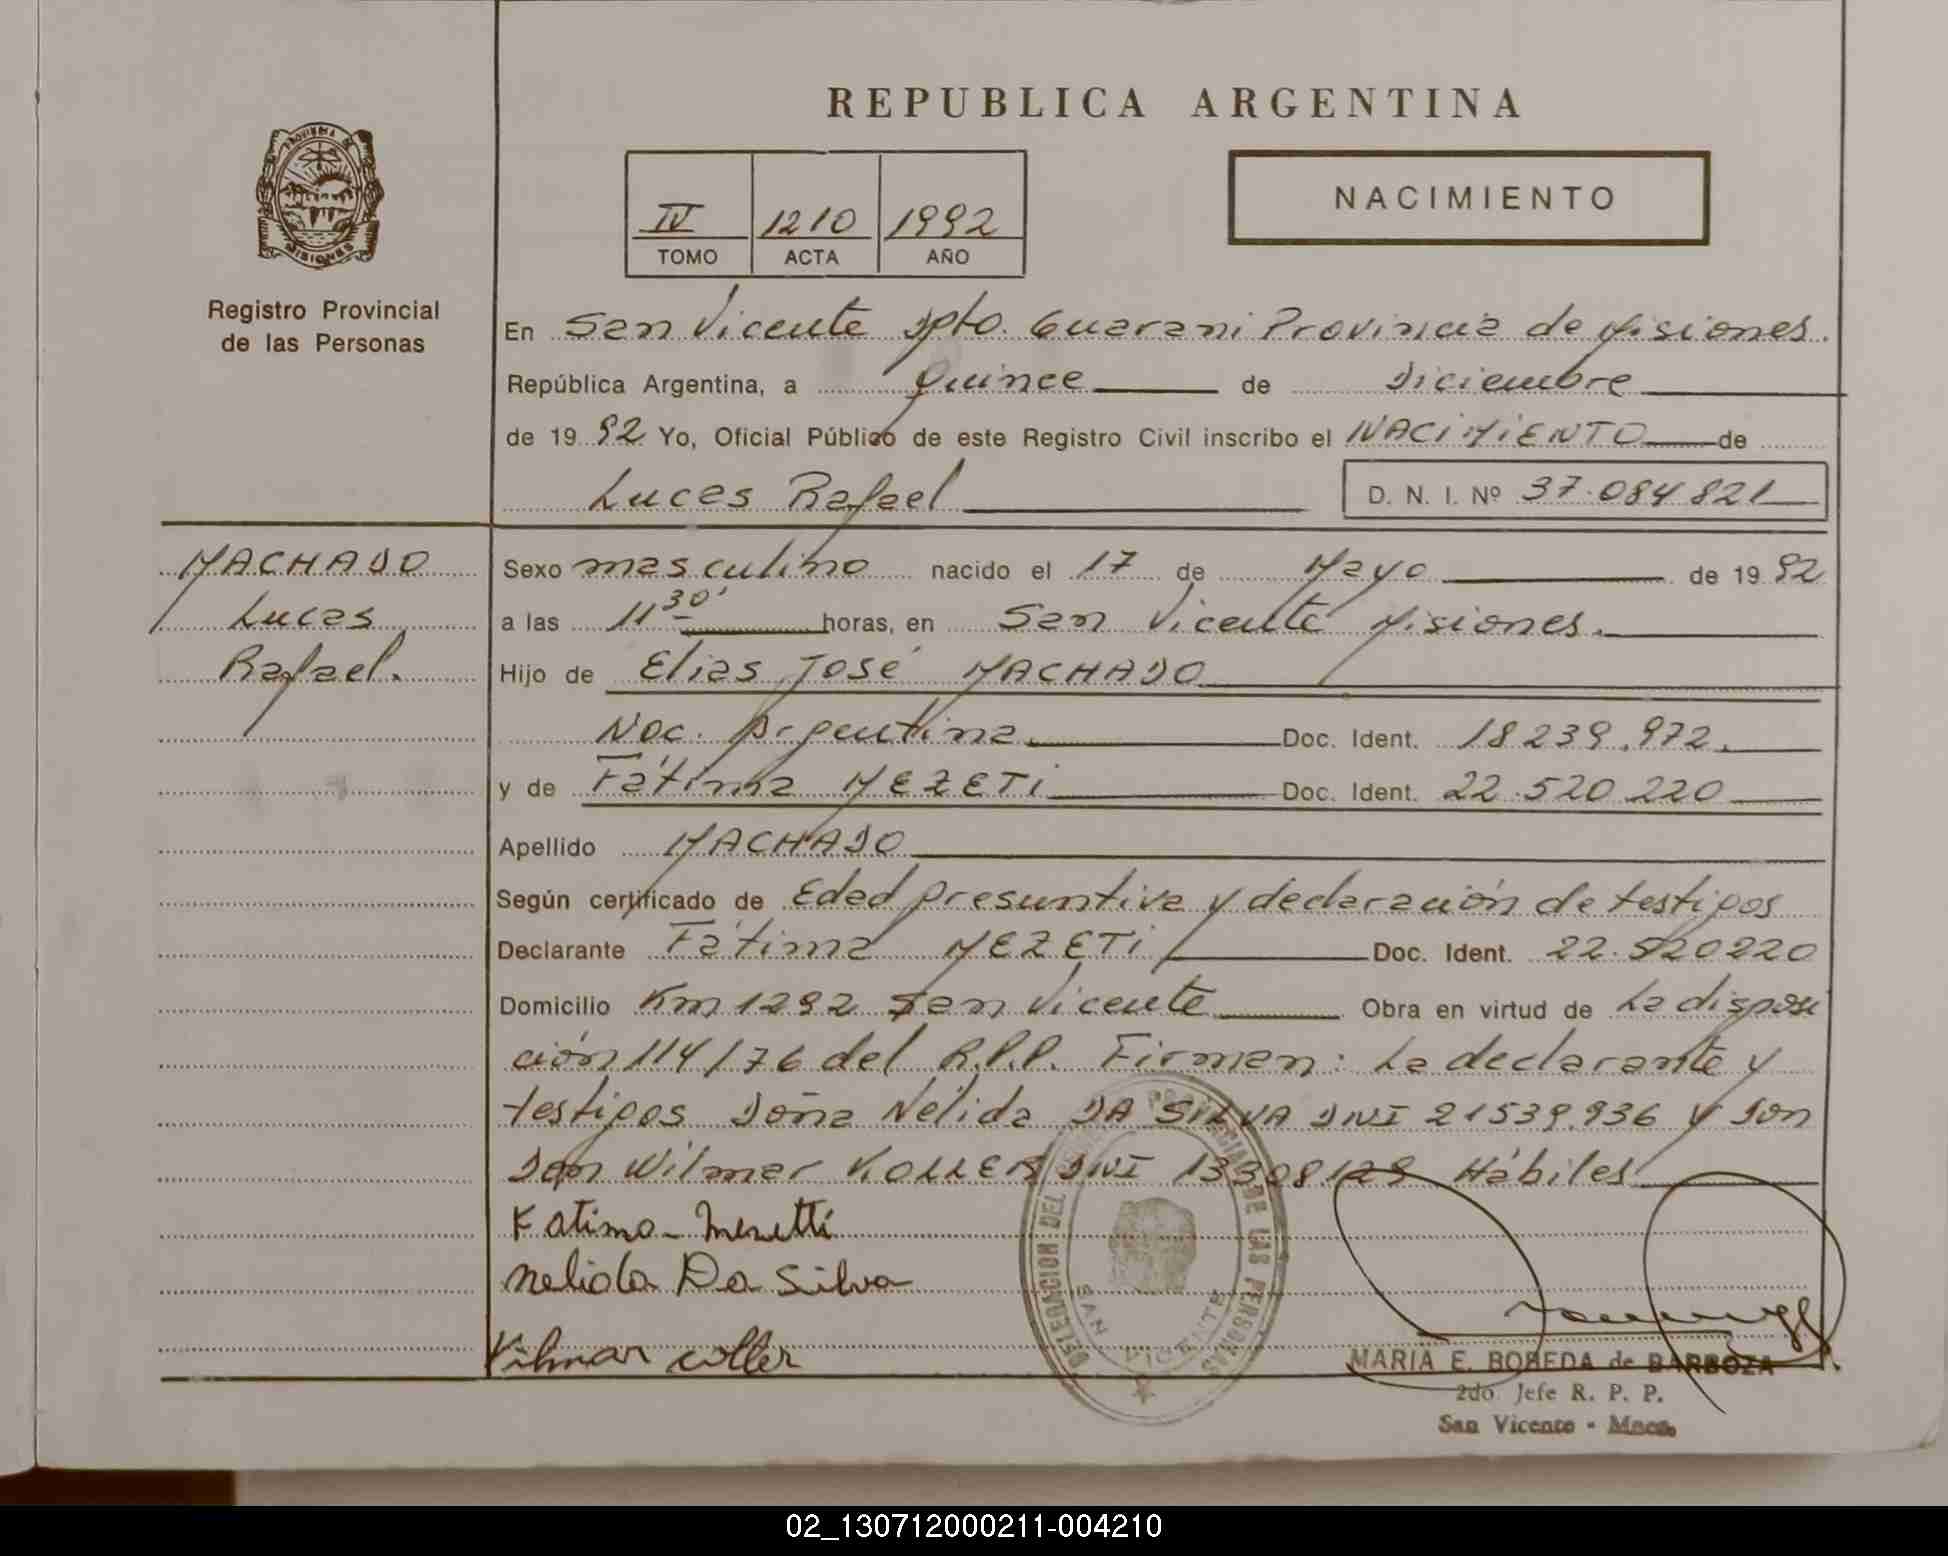 REPUBLICA ARGENTINA
PROVINCIA DE MISIONES
Registro Provincial
de las Personas
IV 1210 1992
TOMO ACTA AÑO
NACIMIENTO
En San Vicente Dpto. Guarani Provincia de Misiones.
República Argentina, a Quince de Diciembre
de 1992 Yo, Oficial Público de este Registro Civil inscribo el NACIMIENTO de
Lucas Rafael D. N. I. Nº 37.084.821
MACHADO
Lucas
Rafael.
Sexo masculino nacido el 17 de Mayo de 1992
a las 11 30' horas, en San Vicente Misiones.
Hijo de Elias José MACHADO
Nac. Argentina Doc. Ident. 18239.972.
y de Fátima MEZETI Doc. Ident. 22.520.220
Apellido MACHADO
Según certificado de Edad presuntiva y declaración de testigos
Declarante Fátima MEZETI Doc. Ident. 22.520220
Domicilio Km 1292 San Vicente Obra en virtud de La disposi
ción 114/76 del R.P.P. Firman: La declarante y
testigos Doña Nélida DA SILVA DNI 21539.936 y Don
Don Wilmar KOLLER DNI 13308129 Hábiles
Fatima Mezetti
Nelida Da Silva
Vilmar coller
DELEGACION DEL REGISTRO PROVINCIAL DE LAS PERSONAS
SAN VICENTE
MARIA E. BOBEDA de BARBOZA
2do. Jefe R. P. P.
San Vicente - Mnes.
02_130712000211-004210